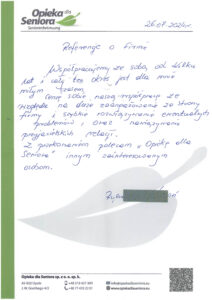 Opieka dla
Seniora
Seniorenbetreuung
26.07.2024r.
Referencje o firmie
Współpracujemy ze sobą od kilku
lat i cały ten okres jest dla mnie
miłym czasem.
Cenię sobie naszą współpracę ze
względu na duże zaangażowanie ze strony
firmy i szybkie rozwiązywanie ewentualnych
problemów, oraz nawiązywanie
przyjacielskich relacji.
Z przekonaniem polecam "Opiekę dla
Seniora" innym zainteresowanym
osobom.
Opieka dla Seniora sp. z o. o. sp. k.